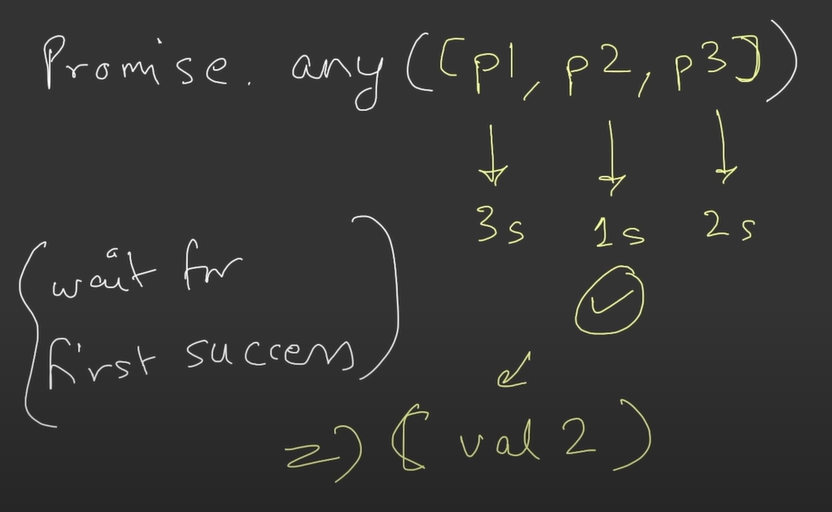 Promise. any([p1, p2, p3])
3s 1s 2s
(wait for
first success)
=> ( val 2 )